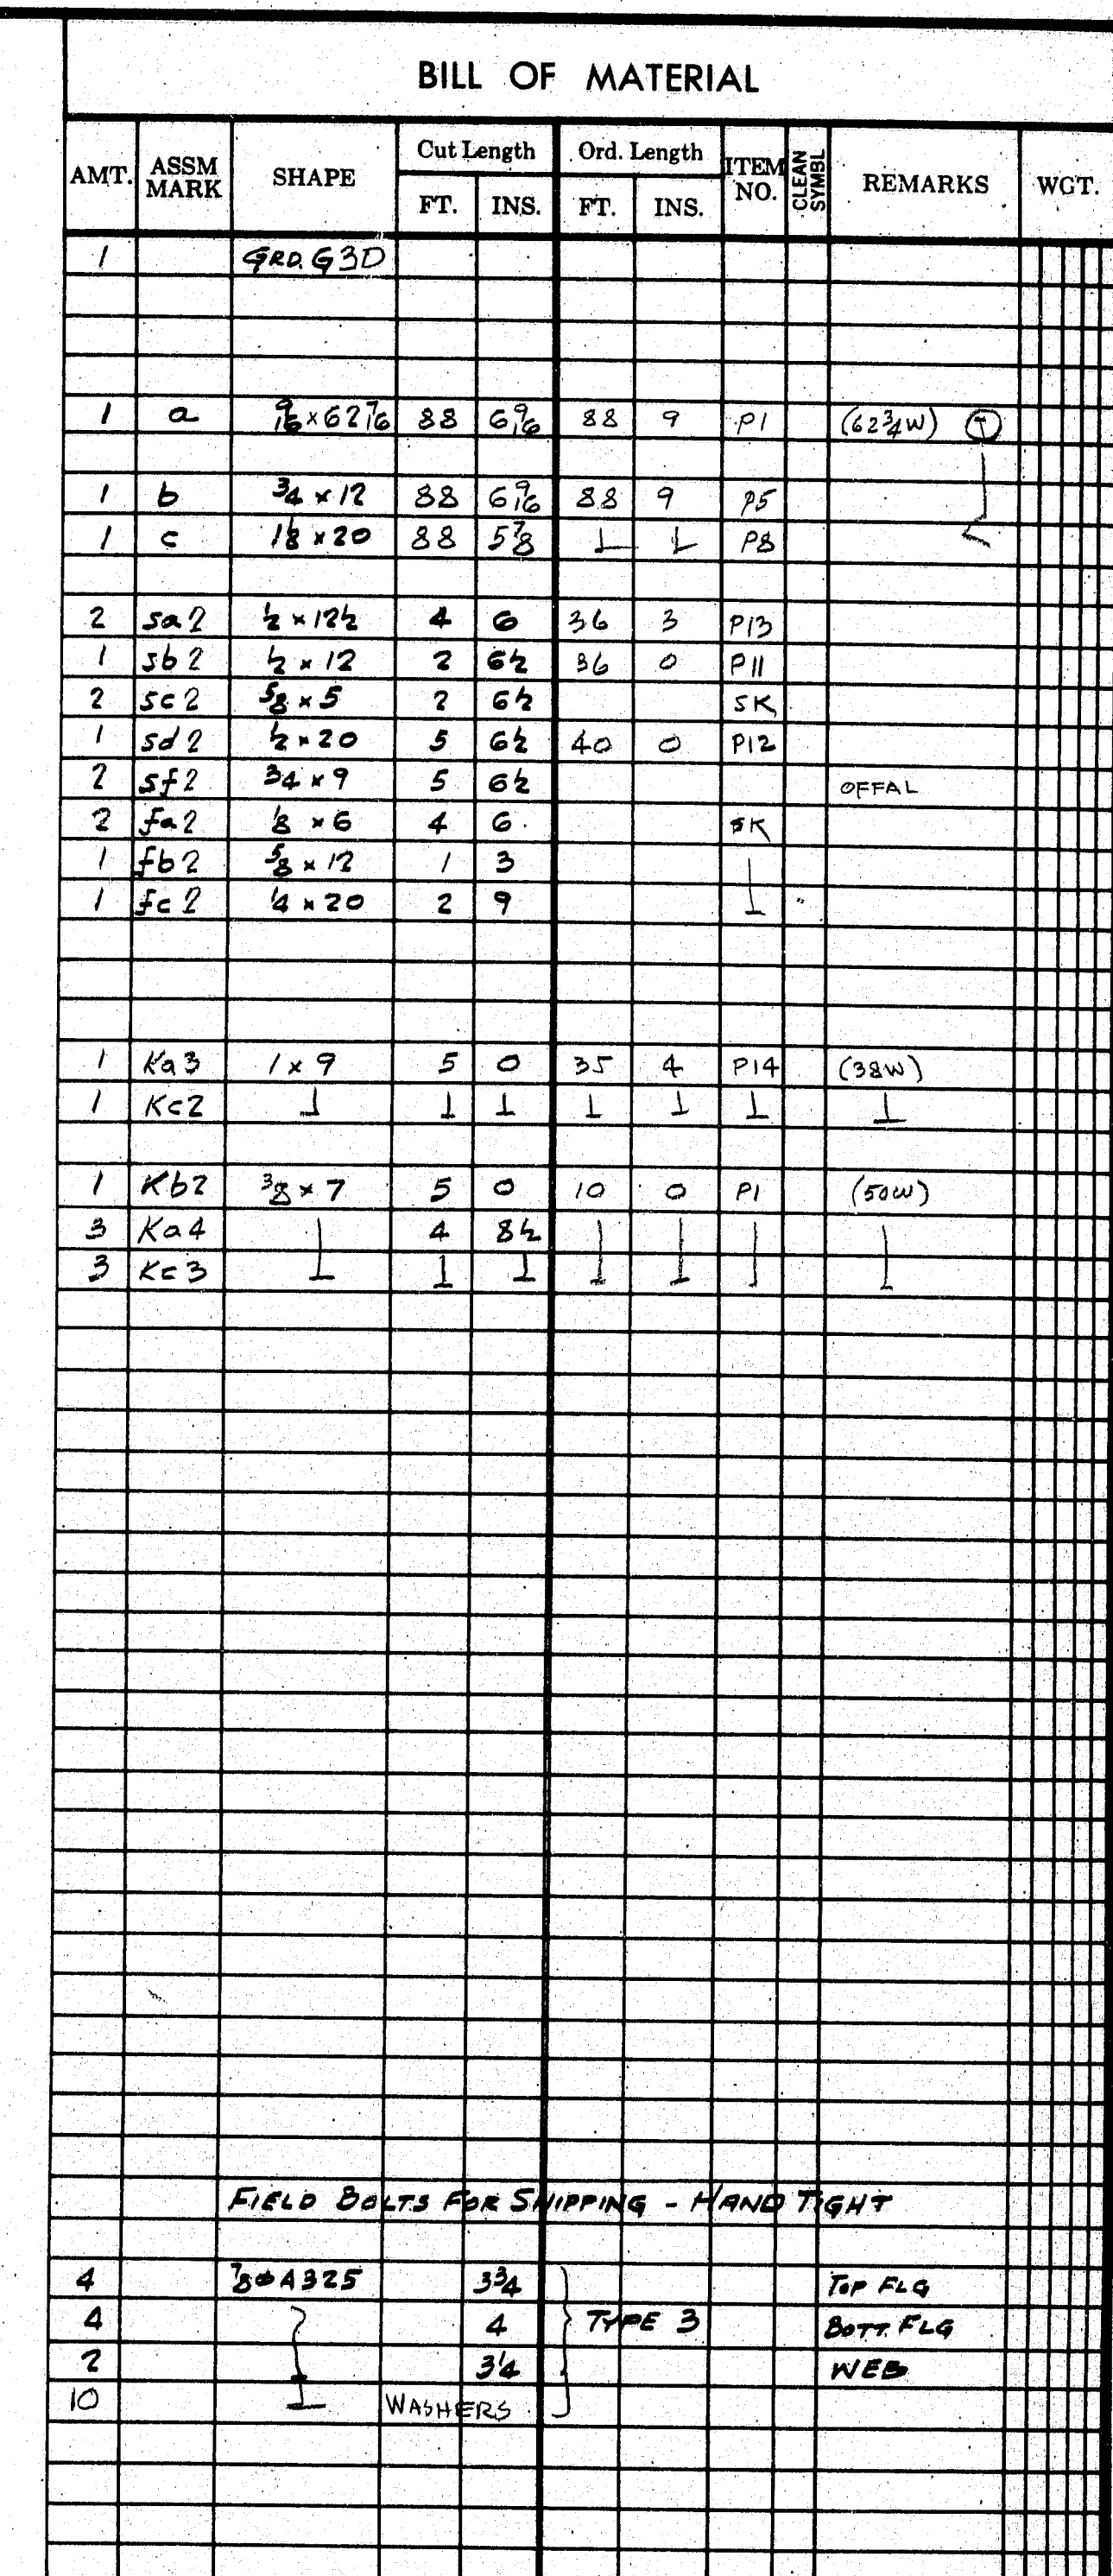 BILL OF MATERIAL
AMT. ASSM MARK SHAPE Cut Length FT. INS. Ord. Length FT. INS. ITEM NO. CLEAN SYMBL REMARKS WGT.
1 GRD. G3D
1 a 9/16 × 62 7/16 88 6 9/16 88 9 P1 (62 3/4 W) T
1 b 3/4 × 12 88 6 9/16 88 9 P5
1 c 1 1/8 × 20 88 5 7/8 ⊥ ⊥ P8
2 sa2 1/2 × 12 1/2 4 6 36 3 P13
1 sb2 1/2 × 12 2 6 1/2 36 0 P11
2 sc2 5/8 × 5 2 6 1/2 SK
1 sd2 1/2 × 20 5 6 1/2 40 0 P12
2 sf2 3/4 × 9 5 6 1/2 OFFAL
2 fa2 1/8 × 6 4 6 SK
1 fb2 5/8 × 12 1 3
1 fc2 1/4 × 20 2 9 ⊥
1 Ka3 1 × 9 5 0 35 4 P14 (38W)
1 Kc2 ⊥ ⊥ ⊥ ⊥ ⊥ ⊥ ⊥
1 Kb2 3/8 × 7 5 0 10 0 P1 (50W)
3 Ka4 4 8 1/2
3 Kc3 ⊥ ⊥ ⊥ ⊥ ⊥
FIELD BOLTS FOR SHIPPING - HAND TIGHT
4 7/8 ø A325 3 3/4 TOP FLG
4 4 TYPE 3 BOTT. FLG
2 3 1/4 WEB
10 ⊥ WASHERS